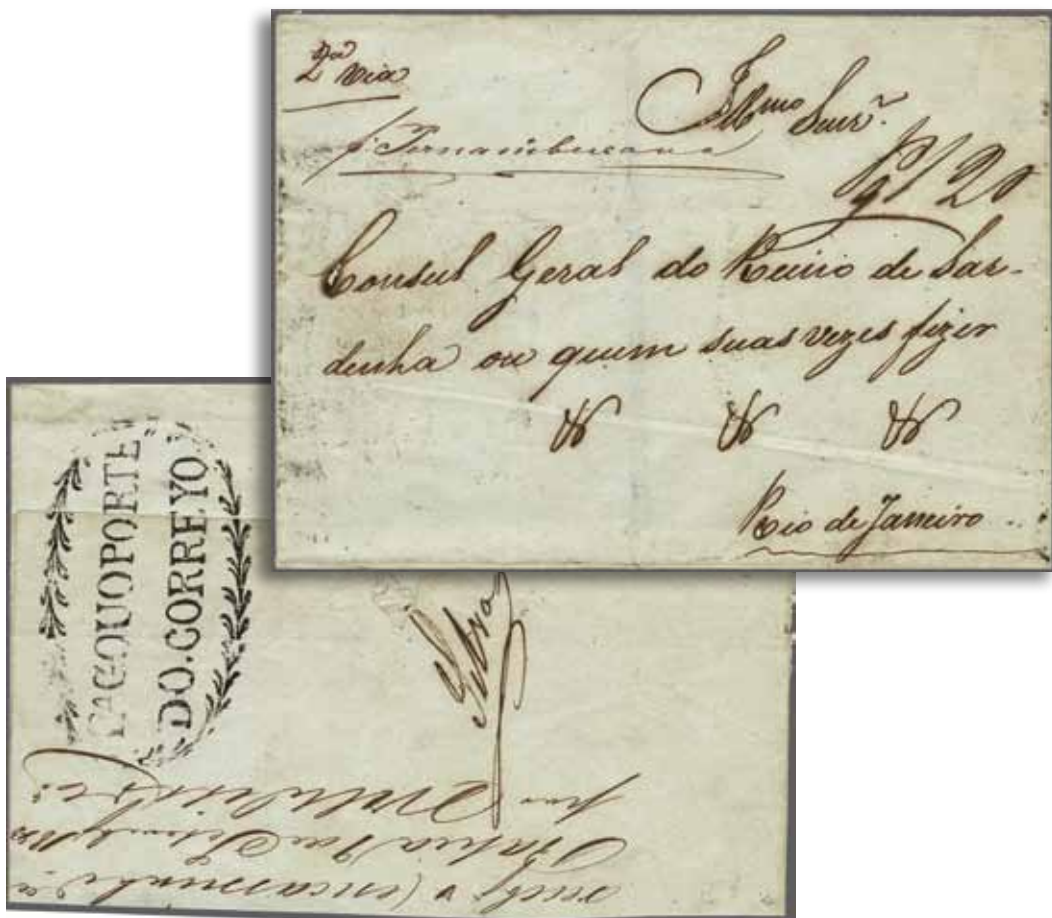 2ª via
p. Pernambucana
Illmo Senr.
Pg 120
Consul Geral do Reino de Sar-
denha ou quem suas vezes fizer
& & &
Rio de Janeiro
PAGOUOPORTE
DO.CORREYO
recebi a
por